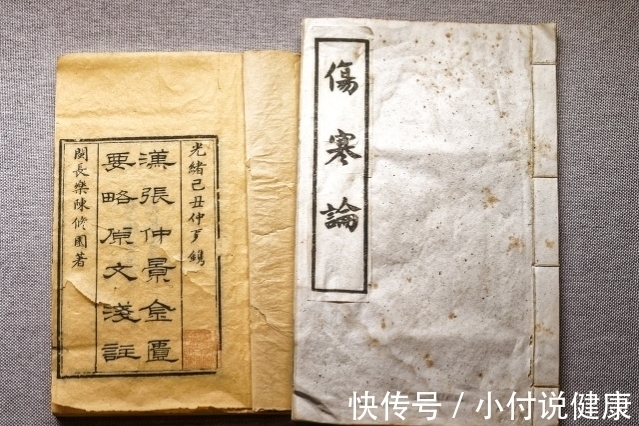 傷寒論
光緒己丑仲鐫
漢張仲景金匱
要略原文淺註
閩長樂陳修園著
快传号 / 小付说健康